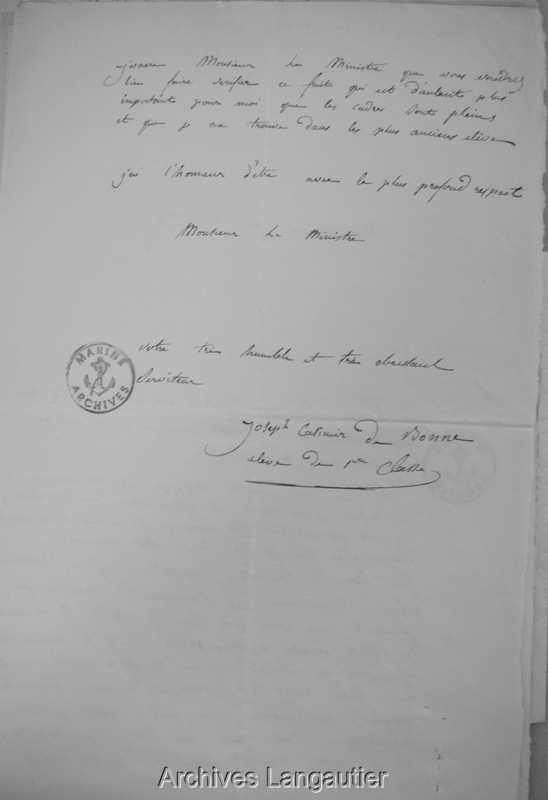 j'espere Monsieur Le Ministre que vous voudrez
bien faire verifier ce fait qui est d'autant plus
important pour moi que les cadres sont pleins
et que je me trouve dans les plus anciens elève
j'ai l'honneur d'être avec le plus profond respect
Monsieur Le Ministre
votre très humble et très obeissant
Serviteur
MARINE
ARCHIVES
Joseph Casimir de Bonne
elève de 1ere classe
Archives Langautier